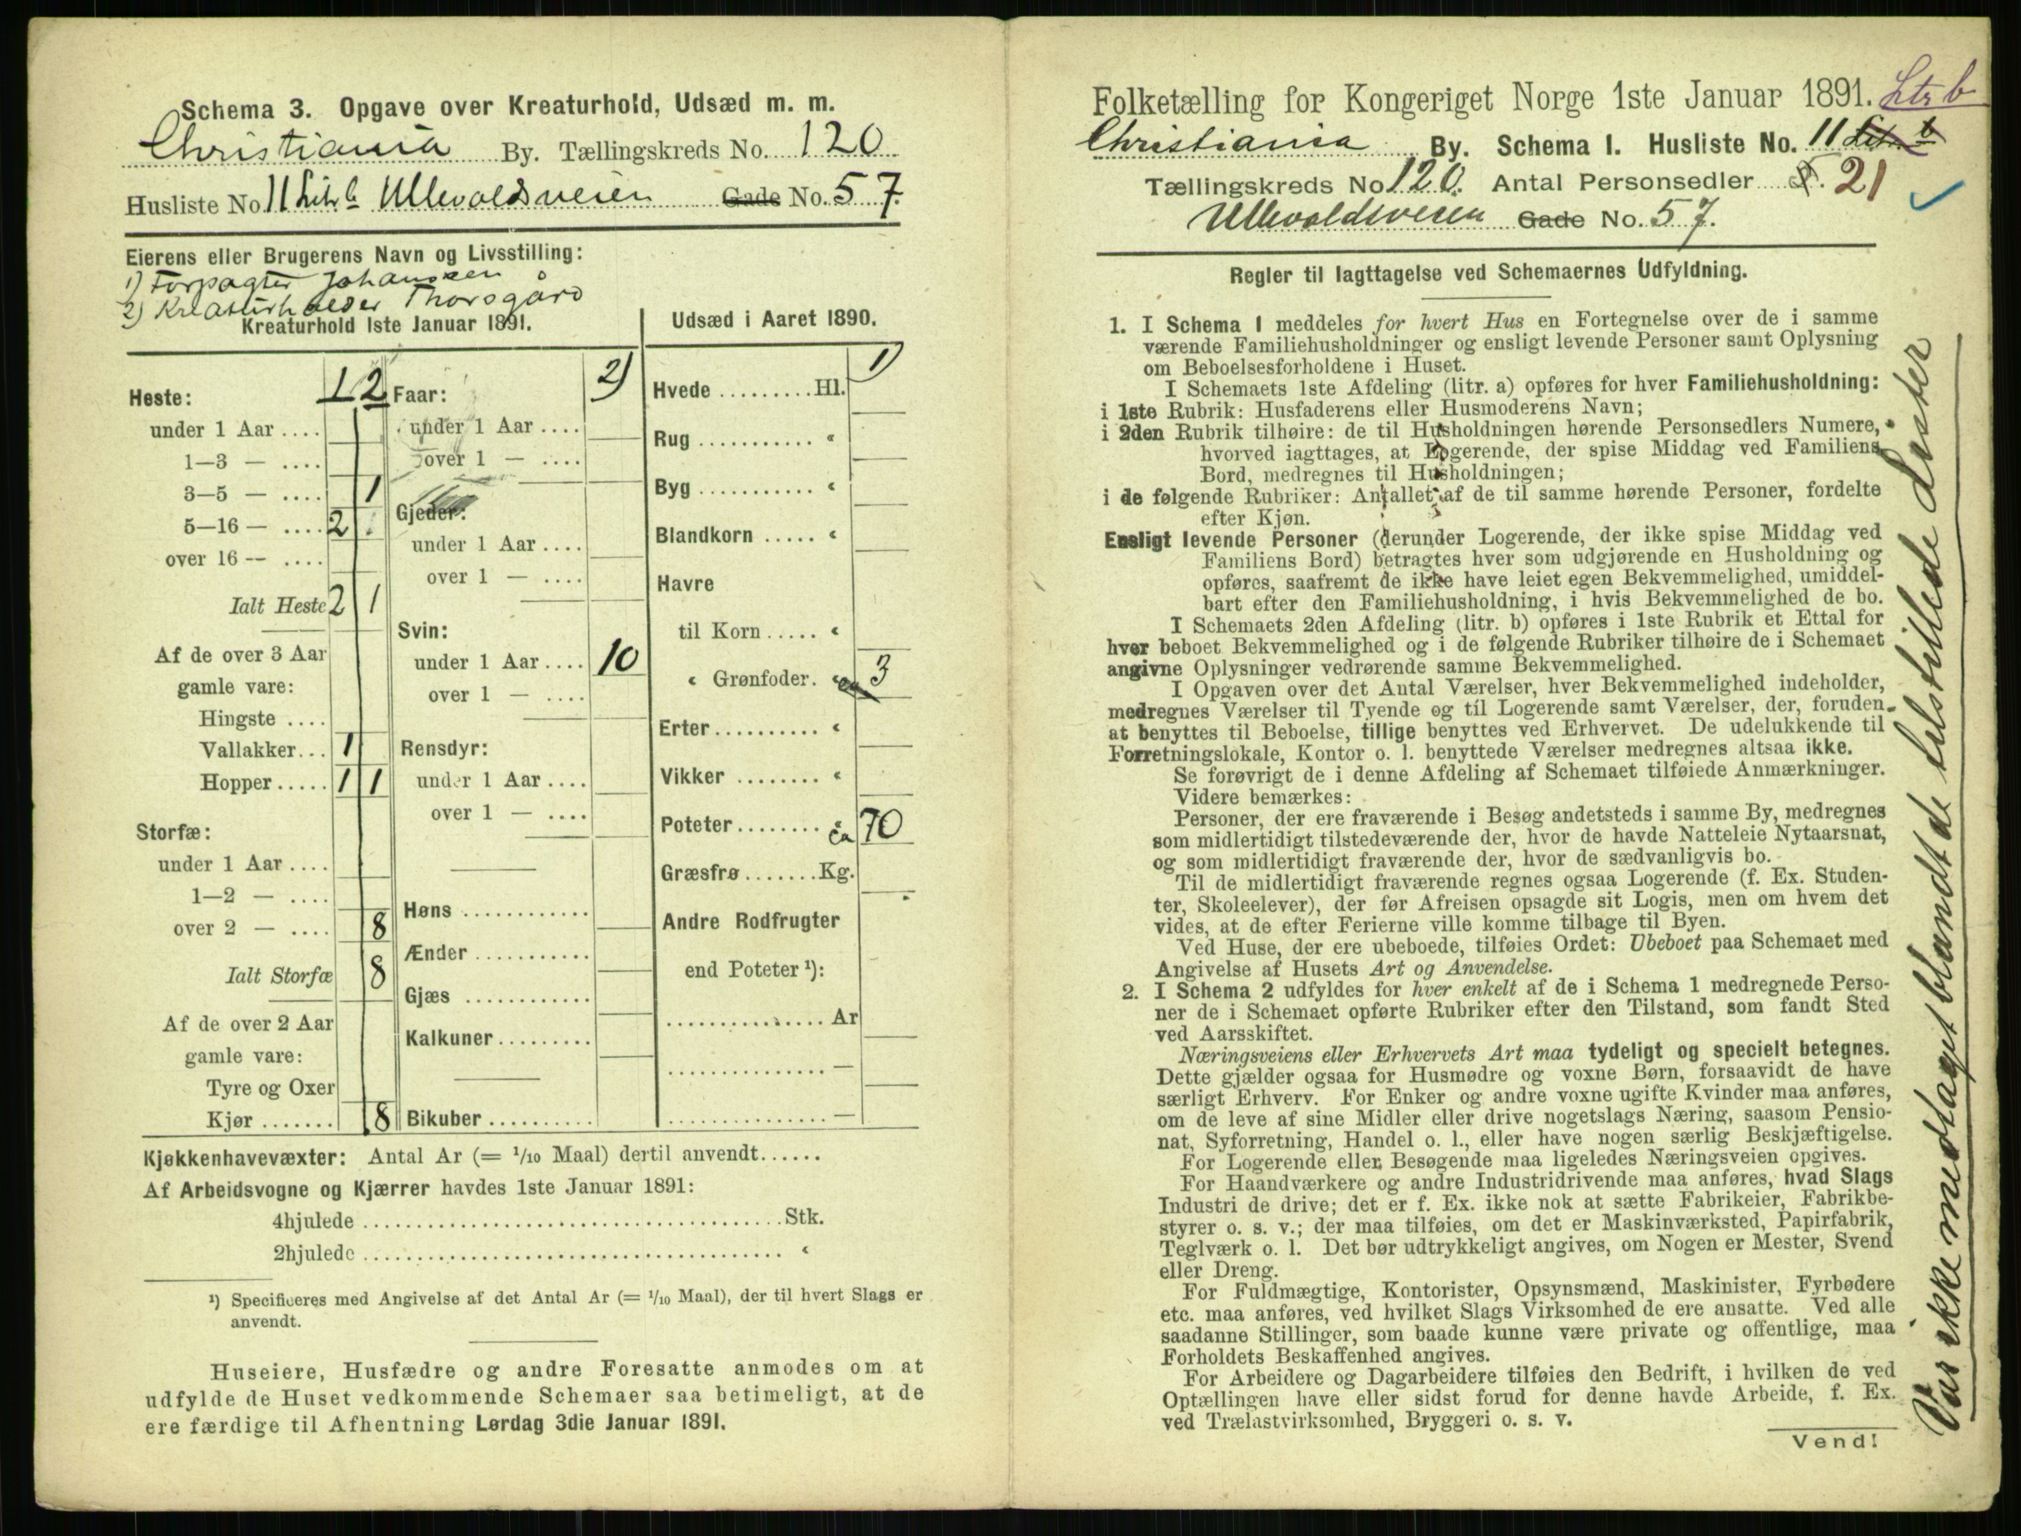 Schema 3. Opgave over Kreaturhold, Udsæd m. m.
Christiania By. Tællingskreds No. 120
Husliste No. 11 Litr b Ullevoldsveien Gade No. 57.
Eierens eller Brugerens Navn og Livsstilling:
1) Forpagter Johanssen
2) Kreaturholder Thorsgård
Kreaturhold 1ste Januar 1891.
1 2
Heste:
under 1 Aar ....
1—3 — ....
3—5 — .... 1
5—16 — .... 2
over 16 — ....
Ialt Heste 2 1
Af de over 3 Aar
gamle vare:
Hingste ....
Vallakker... 1
Hopper ..... 1 1
Storfæ:
under 1 Aar ....
1—2 — ....
over 2 — .... 8
Ialt Storfæ 8
Af de over 2 Aar
gamle vare:
Tyre og Oxer
Kjør ....... 8
2)
Faar:
under 1 Aar ....
over 1 — ....
Gjeder:
under 1 Aar ....
over 1 — ....
Svin:
under 1 Aar .... 10
over 1 — ....
Rensdyr:
under 1 Aar ....
over 1 — ....
Høns ............
Ænder ...........
Gjæs ............
Kalkuner.........
Bikuber ..........
Udsæd i Aaret 1890.
1)
Hvede .........Hl.
Rug ........... "
Byg ........... "
Blandkorn ..... "
Havre
til Korn ..... "
" Grønfoder. " ca 3
Erter.......... "
Vikker ........ "
Poteter........ " ca 70
Græsfrø .......Kg.
Andre Rodfrugter
end Poteter ¹):
............... Ar
............... —
............... —
Kjøkkenhavevæxter: Antal Ar (= 1/10 Maal) dertil anvendt......
Af Arbeidsvogne og Kjærrer havdes 1ste Januar 1891:
4hjulede ........................................Stk.
2hjulede ........................................ "
¹) Specificeres med Angivelse af det Antal Ar (= 1/10 Maal), der til hvert Slags er
anvendt.
Huseiere, Husfædre og andre Foresatte anmodes om at
udfylde de Huset vedkommende Schemaer saa betimeligt, at de
ere færdige til Afhentning Lørdag 3die Januar 1891.
Folketælling for Kongeriget Norge 1ste Januar 1891. Litr b
Christiania By. Schema 1. Husliste No. 11 Litr b
Tællingskreds No 120. Antal Personsedler 21
Ullevoldsveien Gade No. 57.
Regler til Iagttagelse ved Schemaernes Udfyldning.
1. I Schema 1 meddeles for hvert Hus en Fortegnelse over de i samme
værende Familiehusholdninger og ensligt levende Personer samt Oplysning
om Beboelsesforholdene i Huset.
I Schemaets 1ste Afdeling (litr. a) opføres for hver Familiehusholdning:
i 1ste Rubrik: Husfaderens eller Husmoderens Navn;
i 2den Rubrik tilhøire: de til Husholdningen hørende Personsedlers Numere,
hvorved iagttages, at Logerende, der spise Middag ved Familiens
Bord, medregnes til Husholdningen;
i de følgende Rubriker: Antallet af de til samme hørende Personer, fordelte
efter Kjøn.
Ensligt levende Personer (derunder Logerende, der ikke spise Middag ved
Familiens Bord) betragtes hver som udgjørende en Husholdning og
opføres, saafremt de ikke have leiet egen Bekvemmelighed, umiddel-
bart efter den Familiehusholdning, i hvis Bekvemmelighed de bo.
I Schemaets 2den Afdeling (litr. b) opføres i 1ste Rubrik et Ettal for
hver beboet Bekvemmelighed og i de følgende Rubriker tilhøire de i Schemaet
angivne Oplysninger vedrørende samme Bekvemmelighed.
I Opgaven over det Antal Værelser, hver Bekvemmelighed indeholder,
medregnes Værelser til Tyende og til Logerende samt Værelser, der, foruden
at benyttes til Beboelse, tillige benyttes ved Erhvervet. De udelukkende til
Forretningslokale, Kontor o. l. benyttede Værelser medregnes altsaa ikke.
Se forøvrigt de i denne Afdeling af Schemaet tilføiede Anmærkninger.
Videre bemærkes:
Personer, der ere fraværende i Besøg andetsteds i samme By, medregnes
som midlertidigt tilstedeværende der, hvor de havde Natteleie Nytaarsnat,
og som midlertidigt fraværende der, hvor de sædvanligvis bo.
Til de midlertidigt fraværende regnes ogsaa Logerende (f. Ex. Studen-
ter, Skoleelever), der før Afreisen opsagde sit Logis, men om hvem det
vides, at de efter Ferierne ville komme tilbage til Byen.
Ved Huse, der ere ubeboede, tilføies Ordet: Ubeboet paa Schemaet med
Angivelse af Husets Art og Anvendelse.
2. I Schema 2 udfyldes for hver enkelt af de i Schema 1 medregnede Perso-
ner de i Schemaet opførte Rubriker efter den Tilstand, som fandt Sted
ved Aarsskiftet.
Næringsveiens eller Erhvervets Art maa tydeligt og specielt betegnes.
Dette gjælder ogsaa for Husmødre og voxne Børn, forsaavidt de have
særligt Erhverv. For Enker og andre voxne ugifte Kvinder maa anføres,
om de leve af sine Midler eller drive nogetslags Næring, saasom Pensio-
nat, Syforretning, Handel o. l., eller have nogen særlig Beskjæftigelse.
For Logerende eller Besøgende maa ligeledes Næringsveien opgives.
For Haandværkere og andre Industridrivende maa anføres, hvad Slags
Industri de drive; det er f. Ex. ikke nok at sætte Fabrikeier, Fabrikbe-
styrer o. s. v.; der maa tilføies, om det er Maskinværksted, Papirfabrik,
Teglværk o. l. Det bør udtrykkeligt angives, om Nogen er Mester, Svend
eller Dreng.
For Fuldmægtige, Kontorister, Opsynsmænd, Maskinister, Fyrbødere
etc. maa anføres, ved hvilket Slags Virksomhed de ere ansatte. Ved alle
saadanne Stillinger, som baade kunne være private og offentlige, maa
Forholdets Beskaffenhed angives.
For Arbeidere og Dagarbeidere tilføies den Bedrift, i hvilken de ved
Optællingen have eller sidst forud for denne havde Arbeide, f. Ex.
ved Trælastvirksomhed, Bryggeri o. s. v.
Vend!
Var ikke medtaget blandt de tilstillede Lister